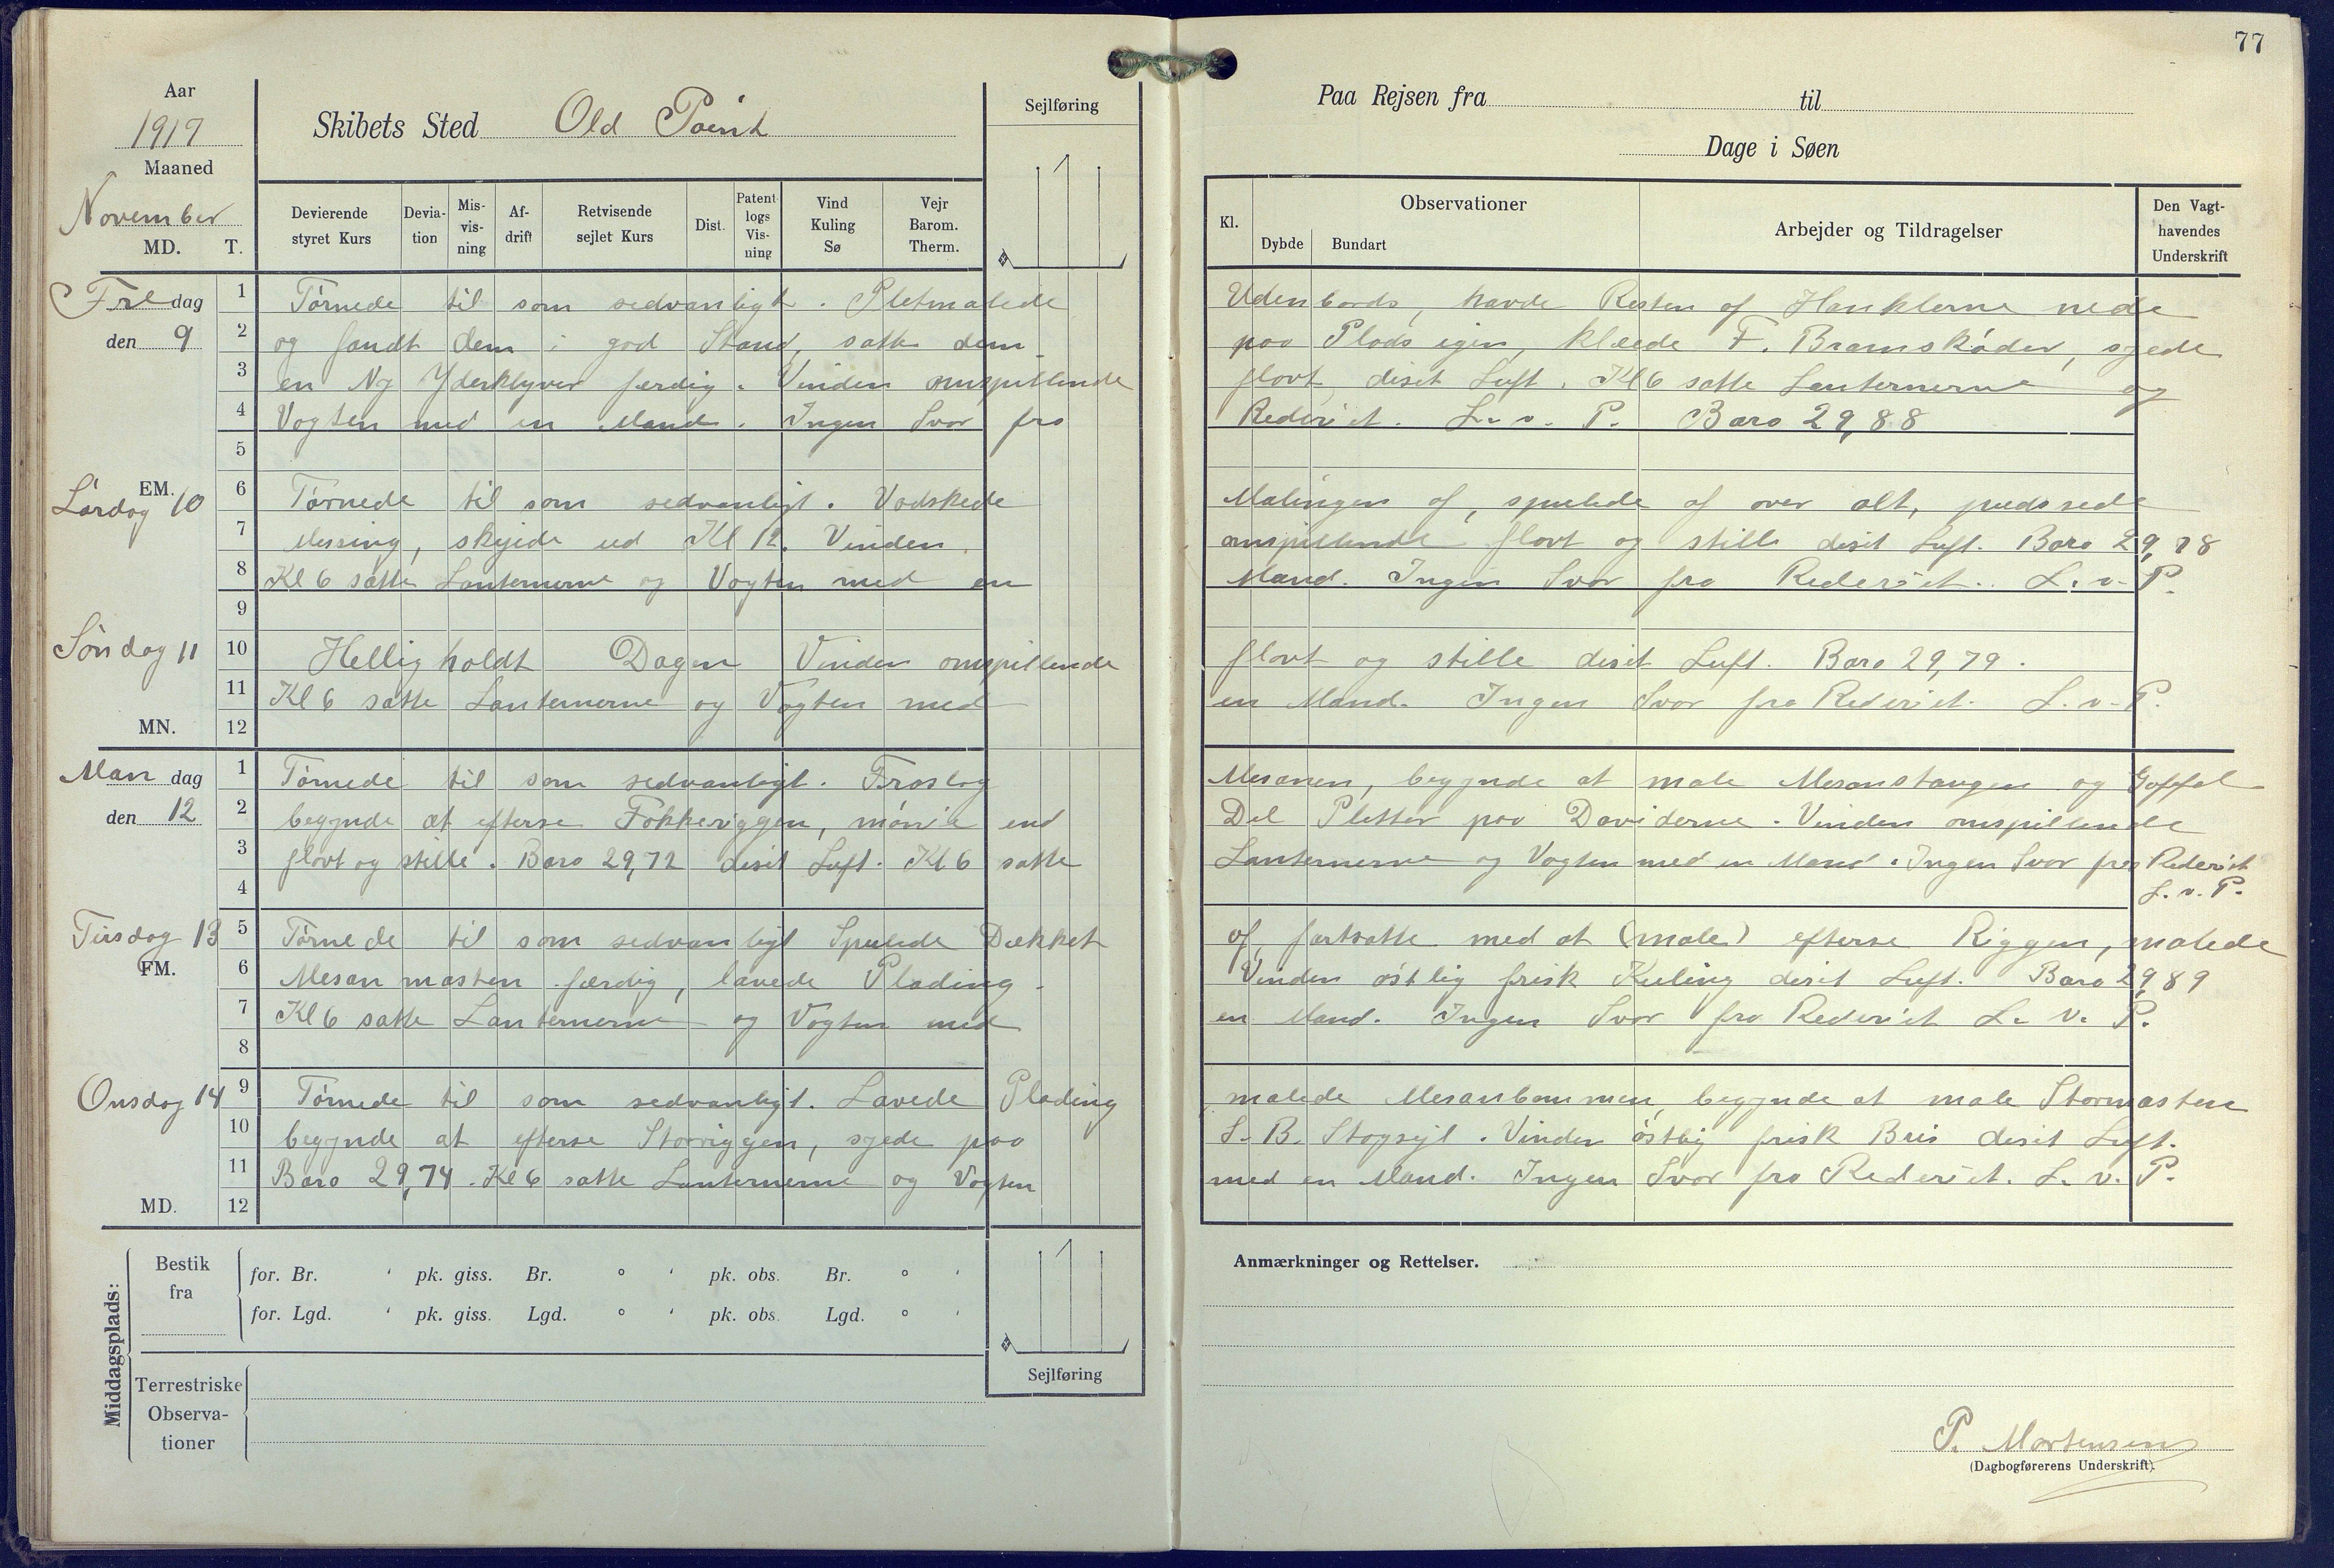 77
Aar
1917
Maaned
November
MD. T.
Skibets Sted Old Point
Sejlføring
Paa Rejsen fra til
Dage i Søen
Devierende styret Kurs
Deviation
Misvisning
Afdrift
Retvisende sejlet Kurs
Dist.
Patentlogs Visning
Vind Kuling Sø
Vejr Barom. Therm.
Kl.
Observationer
Dybde Bundart
Arbejder og Tildragelser
Den Vagthavendes Underskrift
Fredag den 9
1 Tørnede til som sedvanligt. Pletmalede Udenbords, havde Resten af Hanklerne nede
2 og fandt dem i god Stand, satte dem paa Plads igen, klæede F. Bramskøder, syede
3 en Ny Yderklyver færdig. Vinden omspillende flovt, diset Luft. Kl 6 satte Lanternerne og
4 Vagten med en Mand. Ingen Svar fra Rederiet. L. v. P. Baro 29,88
5
EM.
Lørdag 10
6 Tørnede til som sedvanligt. Vadskede Malingen af, spulede af over alt, pudssede
7 Messing, skejede ud Kl 12. Vinden omspillende flovt og stille diset Luft. Baro 29,78
8 Kl 6 satte Lanternerne og Vagten med en Mand. Ingen Svar fra Rederiet. L. v. P.
9
Søndag 11
10 Hellig holdt Dagen Vinden omspillende flovt og stille diset Luft. Baro 29,79.
11 Kl 6 satte Lanternerne og Vagten med en Mand. Ingen Svar fra Rederiet. L. v. P.
MN. 12
Mandag den 12
1 Tørnede til som sedvanligt. Fraslog Mesanen, begynde at male Mesanstangen og Gaffel
2 begynde at efterse Fokkeriggen, mønie end Del Pletter paa Daviderne. Vinden omspillende
3 flovt og stille. Baro 29,72 diset Luft. Kl 6 satte Lanternerne og Vagten med en Mand. Ingen Svar fra Rederiet
4 L. v. P.
Tirsdag 13
FM.
5 Tørnede til som sedvanligt Spulede Dækket af, fortsatte med at (male) efterse Riggen, malede
6 Mesanmasten færdig, lavede Plading. Vinden østlig frisk Kuling diset Luft. Baro 29,89
7 Kl 6 satte Lanternerne og Vagten med en Mand. Ingen Svar fra Rederiet L. v. P.
8
Onsdag 14
9 Tørnede til som sedvanligt. Lavede Plading malede Mesanbommen, begynde at male Stormasten
10 begynde at efterse Storriggen, syede paa S. B. Stagsejl. Vinden østlig frisk Bris diset Luft.
11 Baro 29,74. Kl 6 satte Lanternerne og Vagten med en Mand. Ingen Svar fra Rederiet. L. v. P.
MD. 12
Middagsplads:
Bestik fra
for. Br. ' pk. giss. Br. ° ' pk. obs. Br. ° '
for. Lgd. ' pk. giss. Lgd. ° ' pk. obs. Lgd. ° '
Terrestriske Observationer
Sejlføring
Anmærkninger og Rettelser.
P. Mortensen
(Dagbogførerens Underskrift).